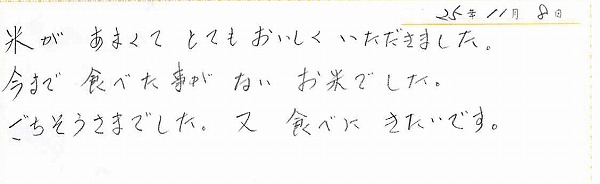 25年11月8日
米が あまくて とても おいしく いただきました。
今まで 食べた事が ない お米でした。
ごちそうさまでした。又 食べに きたいです。